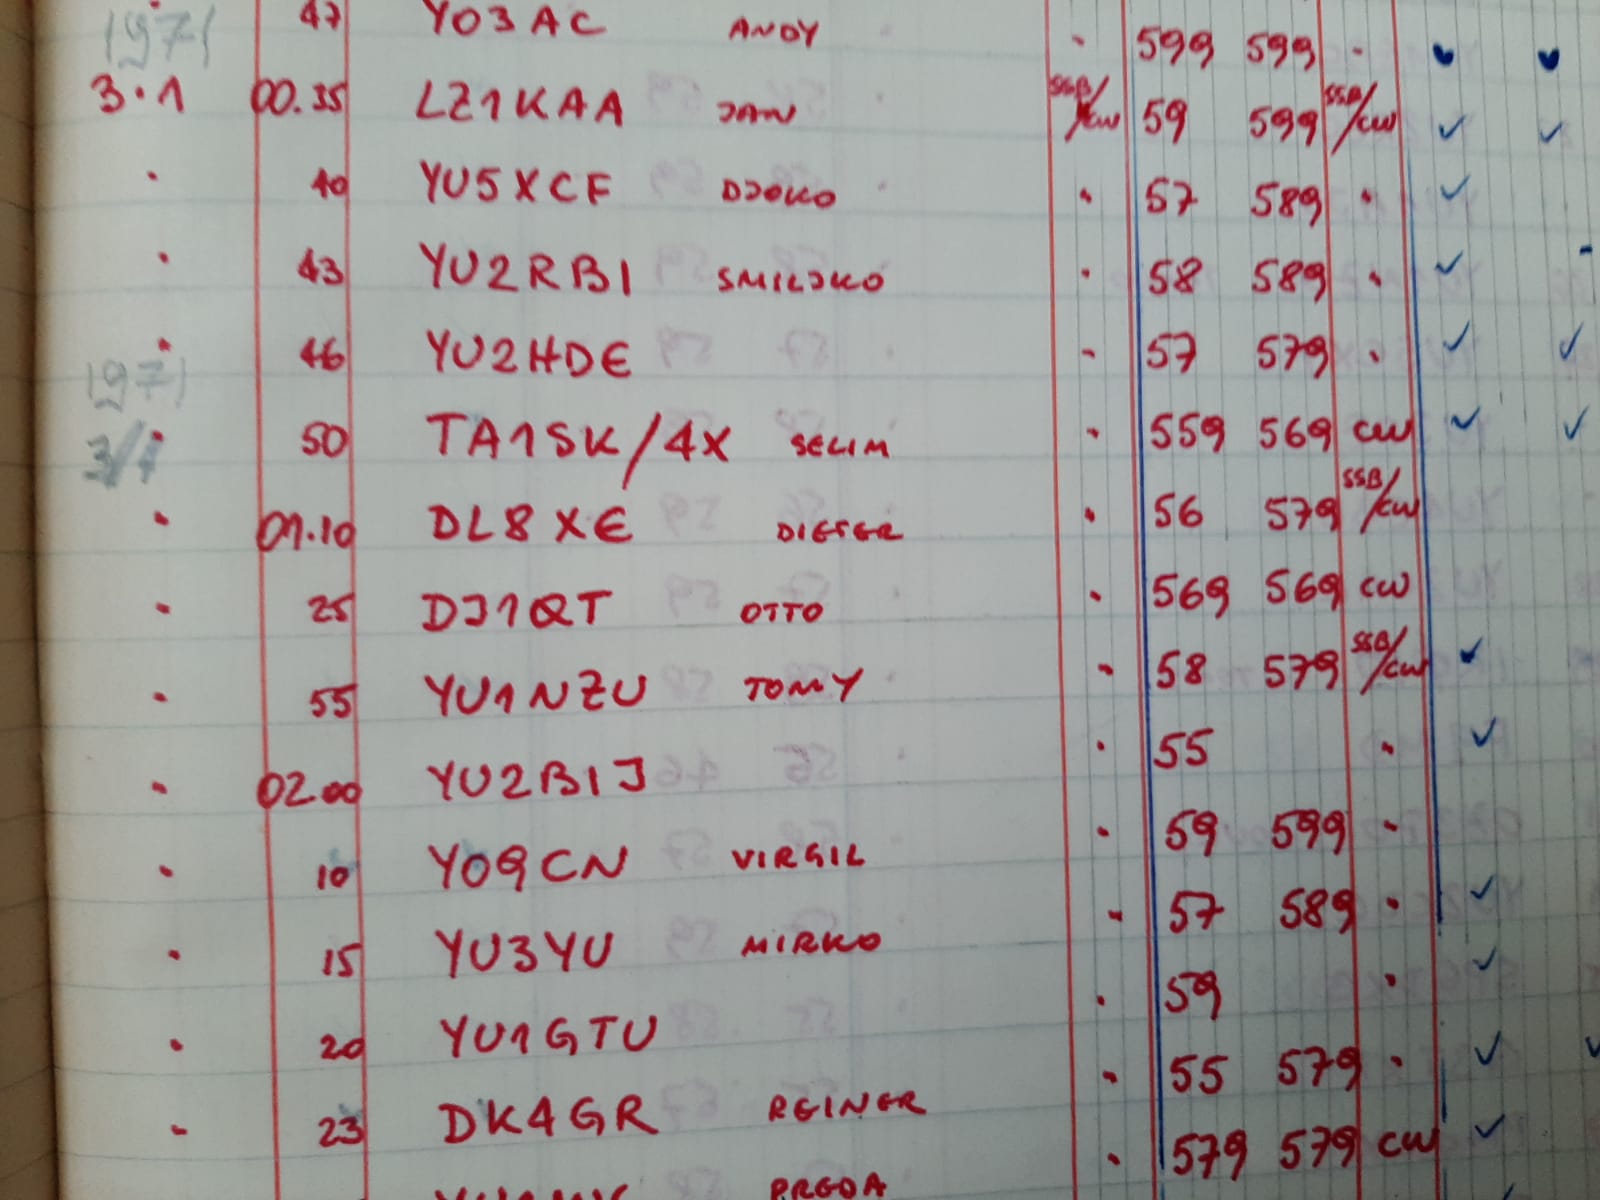 47 YO3AC ANDY - 599 599 -
1971
3.1 00.35 LZ1KAA JAN SSB/CW 59 599 SSB/CW ✓ ✓
" 40 YU5XCF DJOKO " 57 589 " ✓
" 43 YU2RBI SMILJKO " 58 589 " ✓
" 46 YU2HDE - 57 579 " ✓ ✓
1971
3/1 50 TA1SK/4X SELIM - 559 569 CW ✓ ✓
" 01.10 DL8XE DIETER " 56 579 SSB/CW
" 25 DJ1QT OTTO " 569 569 CW
" 55 YU1NZU TOMY " 58 579 SSB/CW ✓
" 02.00 YU2BIJ " 55 " ✓
" 10 YO9CN VIRGIL " 59 599 "
" 15 YU3YU MIRKO " 57 589 " ✓
" 20 YU1GTU " 59 " ✓
" 23 DK4GR REINER " 55 579 " ✓ ✓
PREDA " 579 579 CW ✓